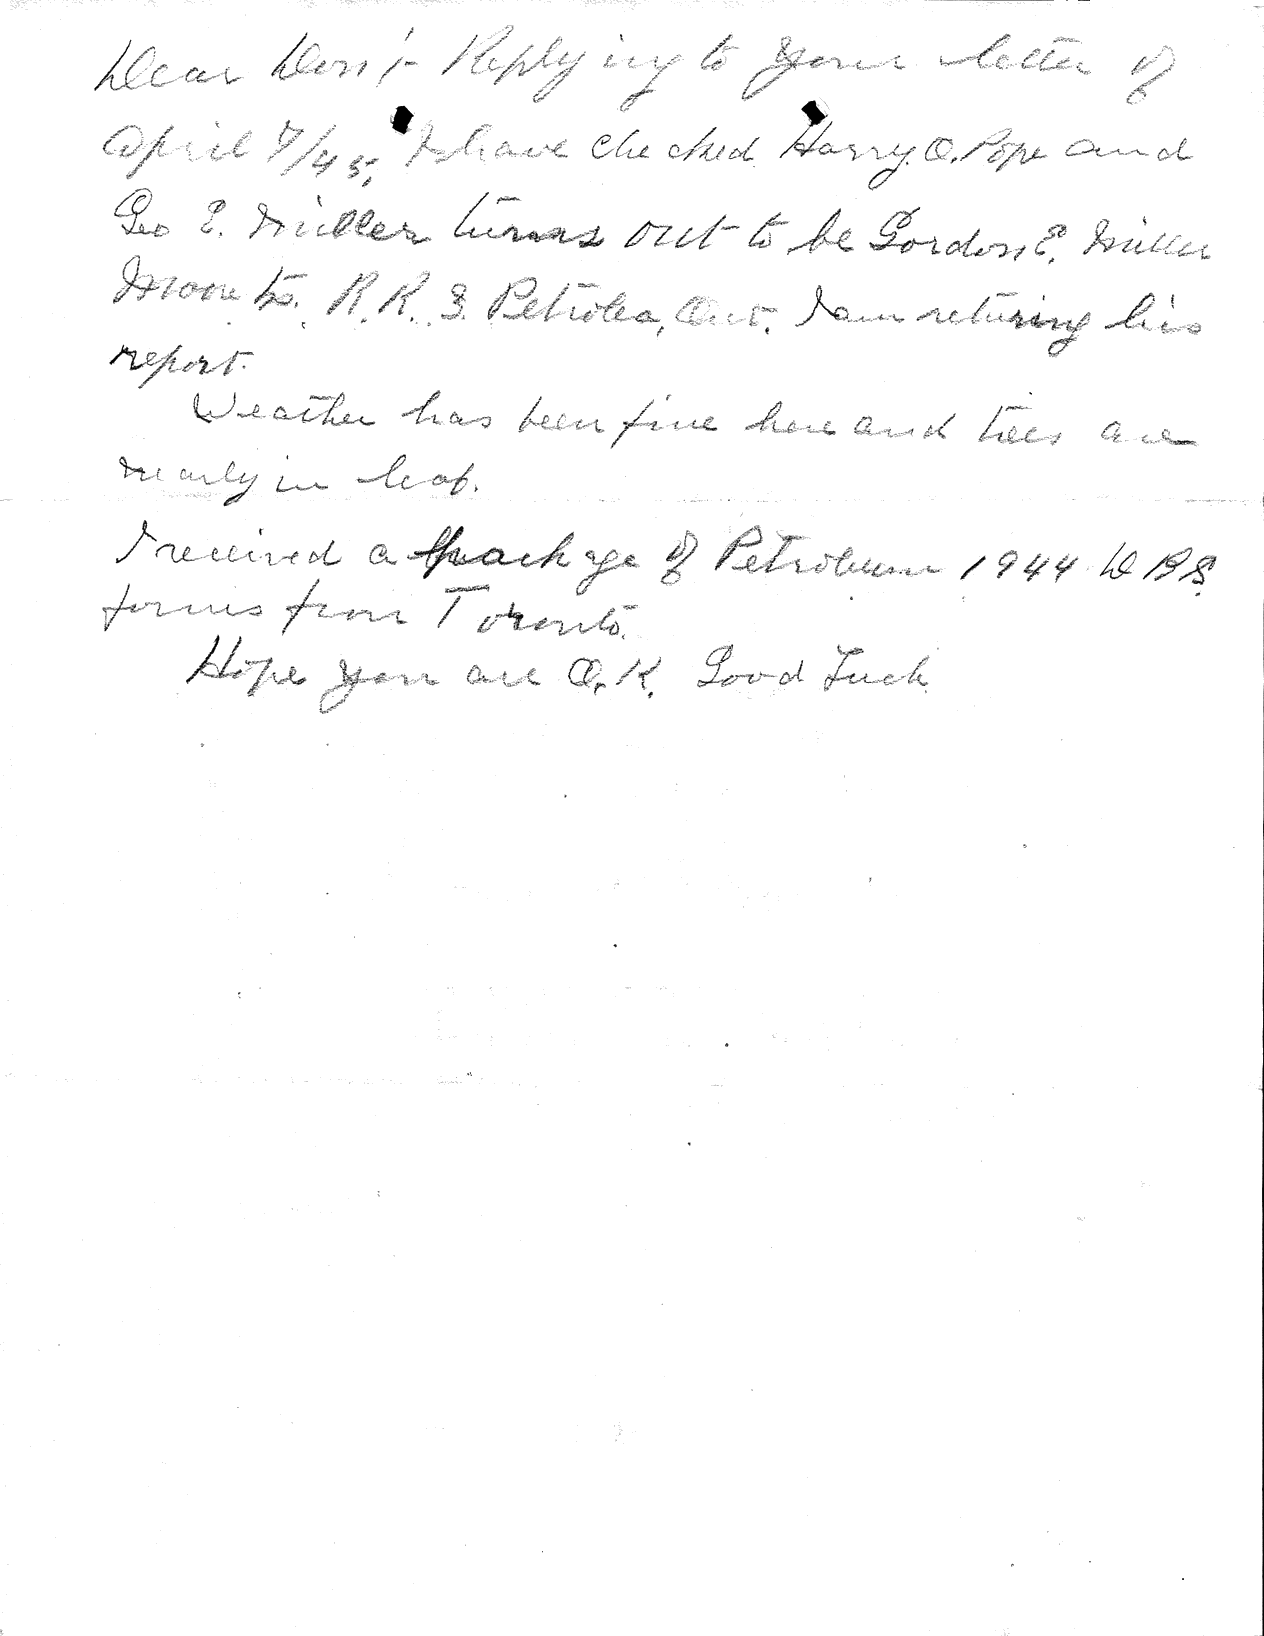 Dear Don:- Replying to your letter of
April 7/45, I have checked Harry. O. Pope and
Geo E. Miller turns out to be Gordon E. Miller
Moore Ts. R.R. 3. Petrolea, Ont. I am returing his
report.
Weather has been fine here and trees are
nearly in leaf.
I received a package of Petroleum 1944 DBS
forms from Toronto.
Hope you are O.K. Good Luck